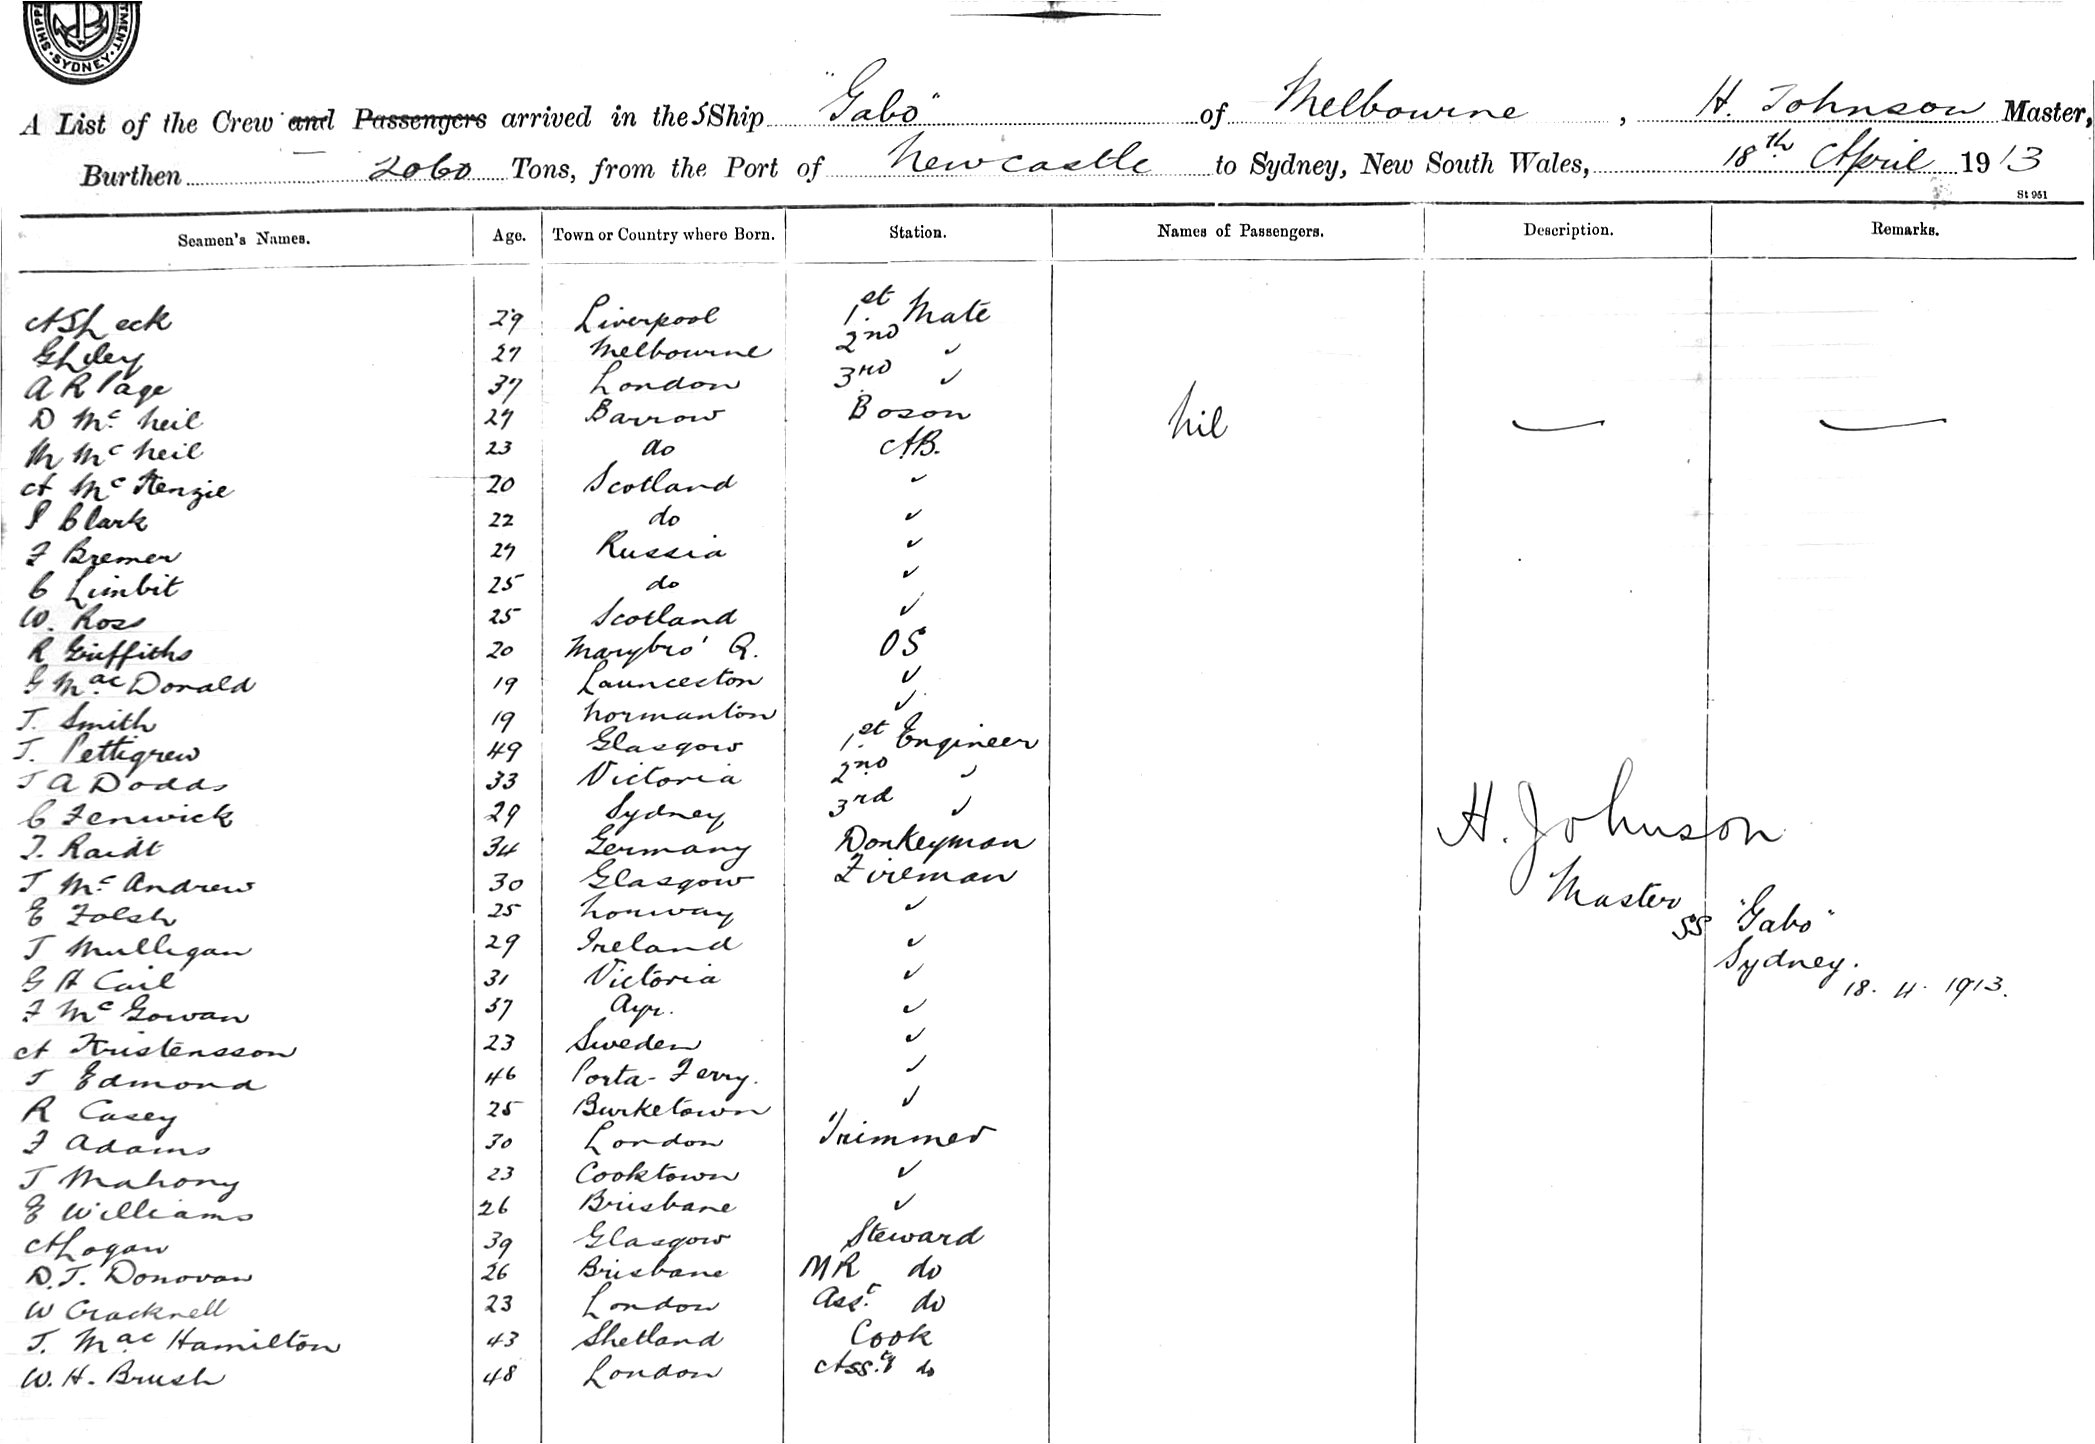 SHIPP TMENT. SYDNEY.
A List of the Crew and Passengers arrived in the SShip "Gabo" of Melbourne, H. Johnson Master,
Burthen 2060 Tons, from the Port of Newcastle to Sydney, New South Wales, 18th April 1913
St 951
Seamen's Names. Age. Town or Country where Born. Station. Names of Passengers. Description. Remarks.
29 Liverpool 1st Mate
27 Melbourne 2nd ✓
A R Page 37 London 3rd ✓
D Mc Neil 27 Barrow Boson Nil — —
M Mc Neil 23 do AB.
A Mc Kenzie 20 Scotland ✓
Clark 22 do ✓
F Bremer 27 Russia ✓
C Limbit 25 do ✓
W. Ross 25 Scotland ✓
R Griffiths 20 Marybro' Q. OS
G Mac Donald 19 Launceston ✓
T. Smith 19 Normanton ✓
T. Pettigrew 49 Glasgow 1st Engineer
T A Dodds 33 Victoria 2nd ✓
C Fenwick 29 Sydney 3rd ✓
Raidt 34 Germany Donkeyman
H. Johnson
T Mc Andrew 30 Glasgow Fireman
Master
E Folsh 25 Norway ✓
SS "Gabo"
T Mulligan 29 Ireland ✓
Sydney.
G H Cail 31 Victoria ✓
18. 4. 1913.
F Mc Gowan 37 Ayr. ✓
A Kristensson 23 Sweden ✓
T Edmond 46 Porta-Ferry. ✓
R Casey 25 Burketown ✓
F Adams 30 London Trimmer
T Mahony 23 Cooktown ✓
E Williams 26 Brisbane ✓
A Logan 39 Glasgow Steward
D. T. Donovan 26 Brisbane MR do
W Cracknell 23 London Asst. do
T. Mac Hamilton 43 Shetland Cook
W. H. Brush 48 London Asst. do